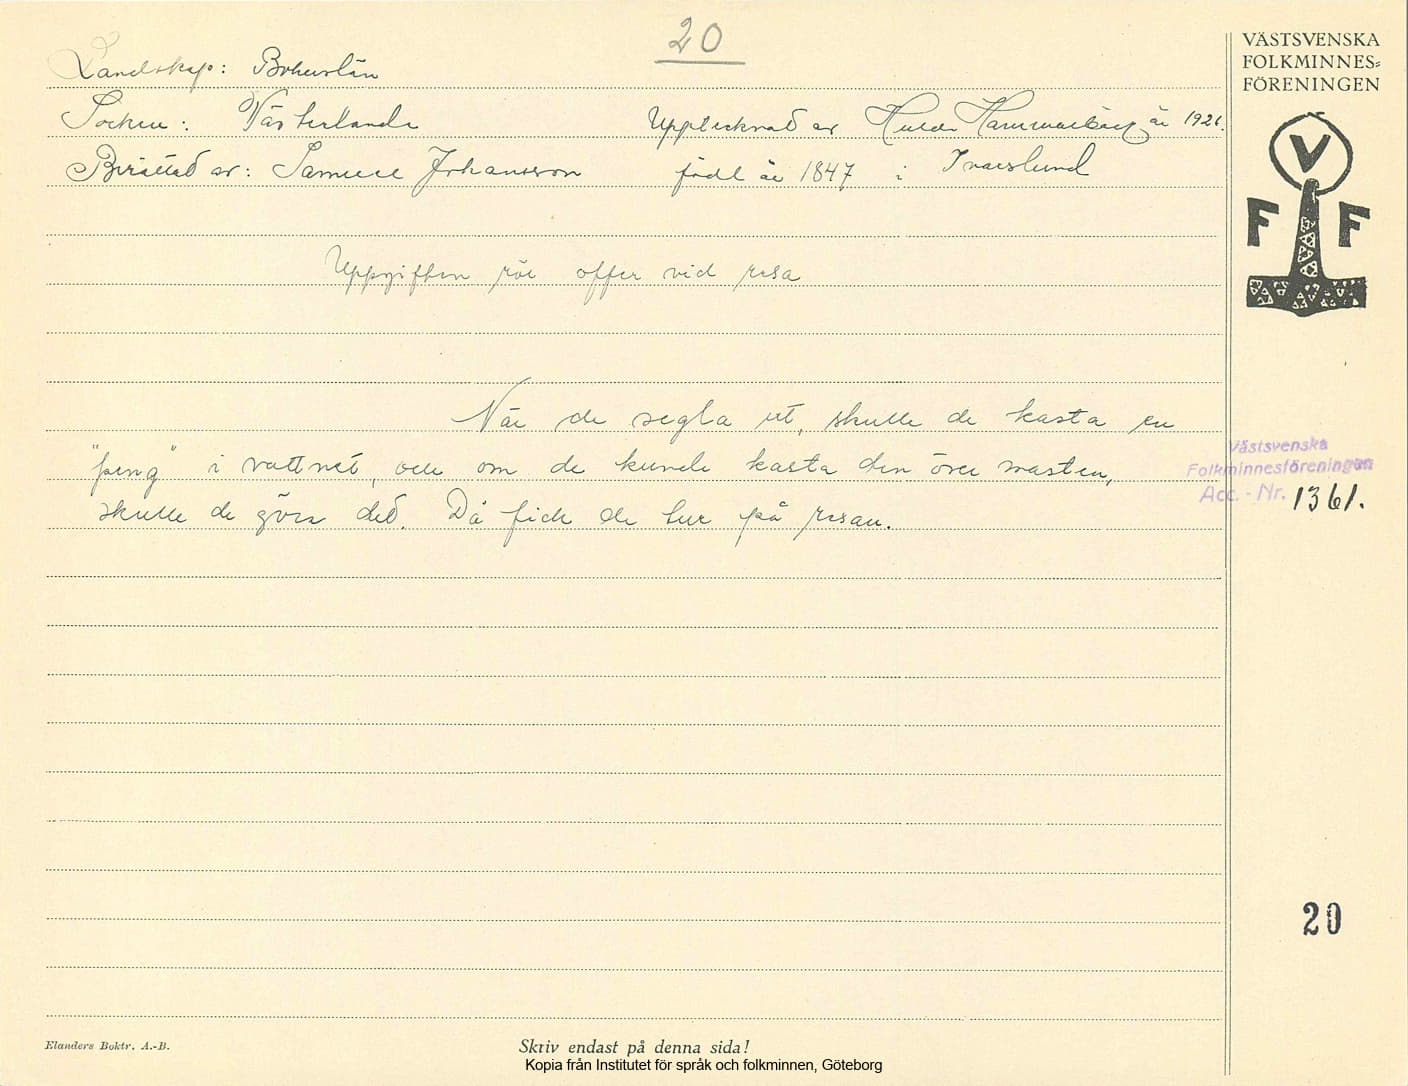 20
VÄSTSVENSKA
FOLKMINNES=
FÖRENINGEN
Landskap: Bohuslän
Socken: Västerlanda Upptecknad av Hulda Hammarbäck år 1926.
Berättad av: Samuel Johansson född år 1847 i Ivarslund
V
F F
Uppgiften rör offer vid resa
När de segla ut, skulle de kasta en
"peng" i vattnet, och om de kunde kasta den över masten,
skulle de göra det. Då fick de tur på resan.
Västsvenska
Folkminnesföreningen
Acc.-Nr. 1361.
20
Elanders Boktr. A.-B.
Skriv endast på denna sida!
Kopia från Institutet för språk och folkminnen, Göteborg